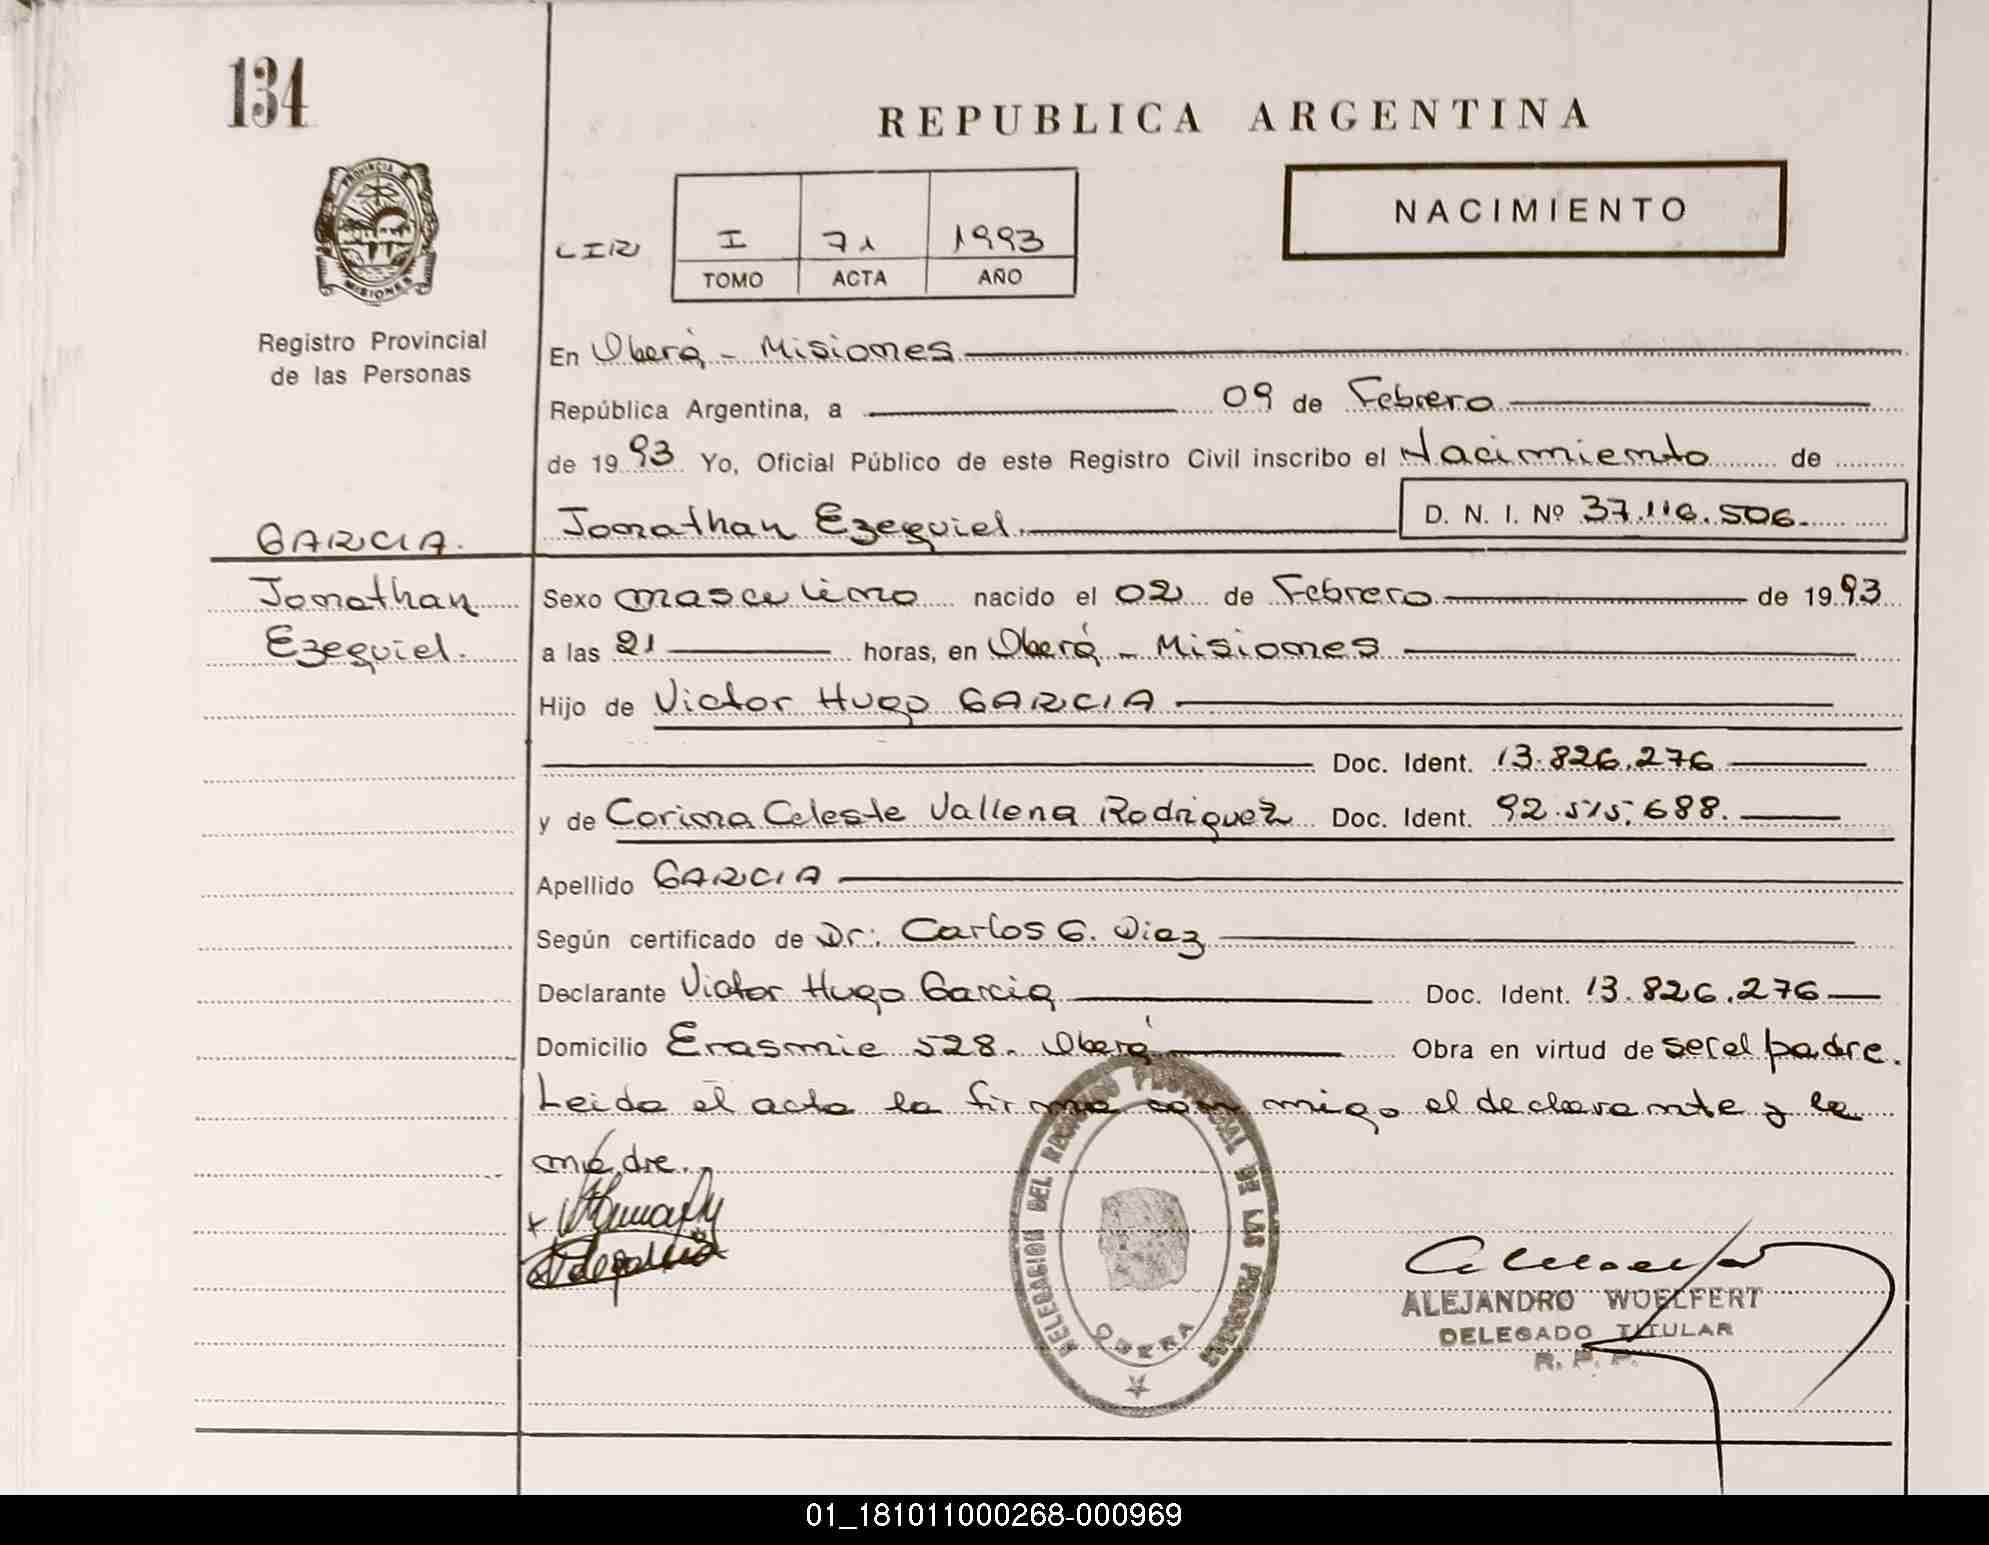 134
REPUBLICA ARGENTINA
PROVINCIA DE
MISIONES
NACIMIENTO
I 71 1993
TOMO ACTA AÑO
Registro Provincial
de las Personas
En Oberá - Misiones
República Argentina, a 09 de Febrero
de 1993 Yo, Oficial Público de este Registro Civil inscribo el Nacimiento de
GARCIA. Jonathan Ezequiel. D. N. I. Nº 37.116.506.
Jonathan Sexo masculino nacido el 02 de Febrero de 1993
Ezequiel. a las 21 horas, en Oberá - Misiones
Hijo de Victor Hugo GARCIA
Doc. Ident. 13.826.276
y de Corina Celeste Vallena Rodriguez Doc. Ident. 92.515.688.
Apellido GARCIA
Según certificado de Dr: Carlos G. Diez
Declarante Victor Hugo Garcia Doc. Ident. 13.826.276
Domicilio Erasmie 528. Oberá Obra en virtud de ser el padre.
Leida el acta la firma conmigo el declarante y la
madre.
DELEGACION DEL REGISTRO PROVINCIAL DE LAS PERSONAS
OBERA
ALEJANDRO WOELFERT
DELEGADO TITULAR
R. P. P.
01_181011000268-000969